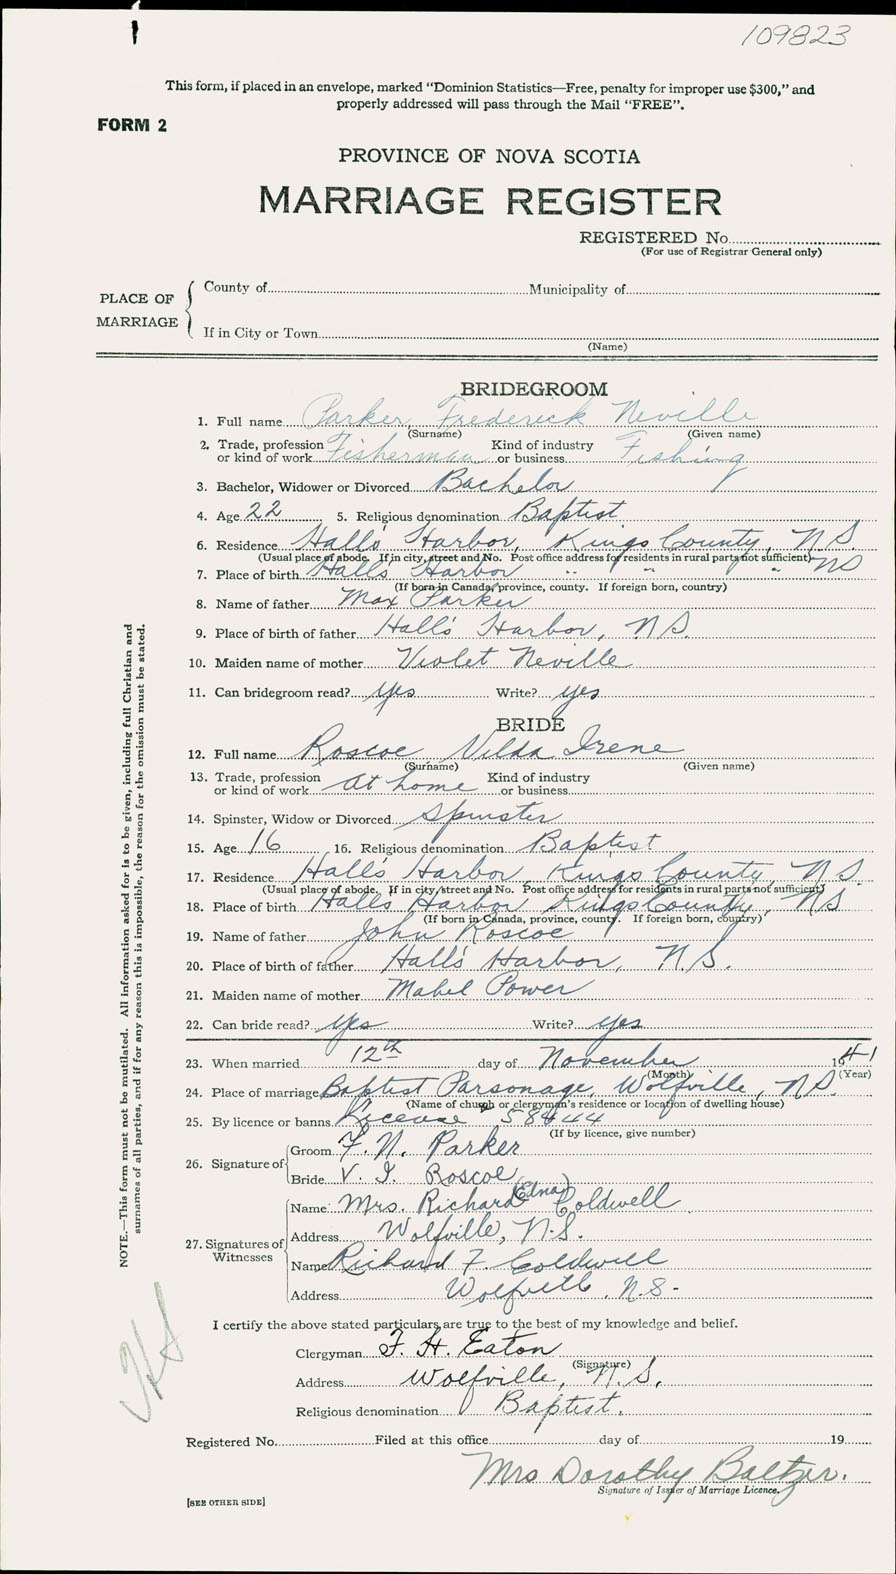 109823
This form, if placed in an envelope, marked "Dominion Statistics—Free, penalty for improper use $300," and
properly addressed will pass through the Mail "FREE".
FORM 2
PROVINCE OF NOVA SCOTIA
MARRIAGE REGISTER
REGISTERED No.
(For use of Registrar General only)
PLACE OF MARRIAGE
County of Municipality of
If in City or Town
(Name)
BRIDEGROOM
1. Full name Parker Frederick Neville
(Surname) (Given name)
2. Trade, profession or kind of work Fisherman Kind of industry or business Fishing
3. Bachelor, Widower or Divorced Bachelor
4. Age 22 5. Religious denomination Baptist
6. Residence Hall's Harbor, Kings County, N.S.
(Usual place of abode. If in city, street and No. Post office address for residents in rural parts not sufficient)
7. Place of birth Hall's Harbor " " " NS
(If born in Canada, province, county. If foreign born, country)
8. Name of father Max Parker
9. Place of birth of father Hall's Harbor, N.S.
10. Maiden name of mother Violet Neville
11. Can bridegroom read? yes Write? yes
BRIDE
12. Full name Roscoe Vilda Irene
(Surname) (Given name)
13. Trade, profession or kind of work at home Kind of industry or business
14. Spinster, Widow or Divorced Spinster
15. Age 16 16. Religious denomination Baptist
17. Residence Hall's Harbor, Kings County, N.S.
(Usual place of abode. If in city, street and No. Post office address for residents in rural parts not sufficient)
18. Place of birth Halls Harbor Kings County, NS
(If born in Canada, province, county. If foreign born, country)
19. Name of father John Roscoe
20. Place of birth of father Hall's Harbor, N.S.
21. Maiden name of mother Mabel Power
22. Can bride read? yes Write? yes
23. When married 12th day of November 1941
(Month) (Year)
24. Place of marriage Baptist Parsonage, Wolfville, N.S.
(Name of church or clergyman's residence or location of dwelling house)
25. By licence or banns License 58444
(If by licence, give number)
26. Signature of Groom F. N. Parker
Bride V. I. Roscoe
27. Signatures of Witnesses
Name Mrs. Richard (Edna) Coldwell
Address Wolfville, N.S.
Name Richard F. Coldwell
Address Wolfville, N.S.
I certify the above stated particulars are true to the best of my knowledge and belief.
Clergyman F. H. Eaton
(Signature)
Address Wolfville, N.S.
Religious denomination Baptist.
Registered No. Filed at this office day of 19
Mrs Dorothy Baltzer.
Signature of Issuer of Marriage Licence.
[SEE OTHER SIDE]
NOTE.—This form must not be mutilated. All information asked for is to be given, including full Christian and
surnames of all parties, and if for any reason this is impossible, the reason for the omission must be stated.